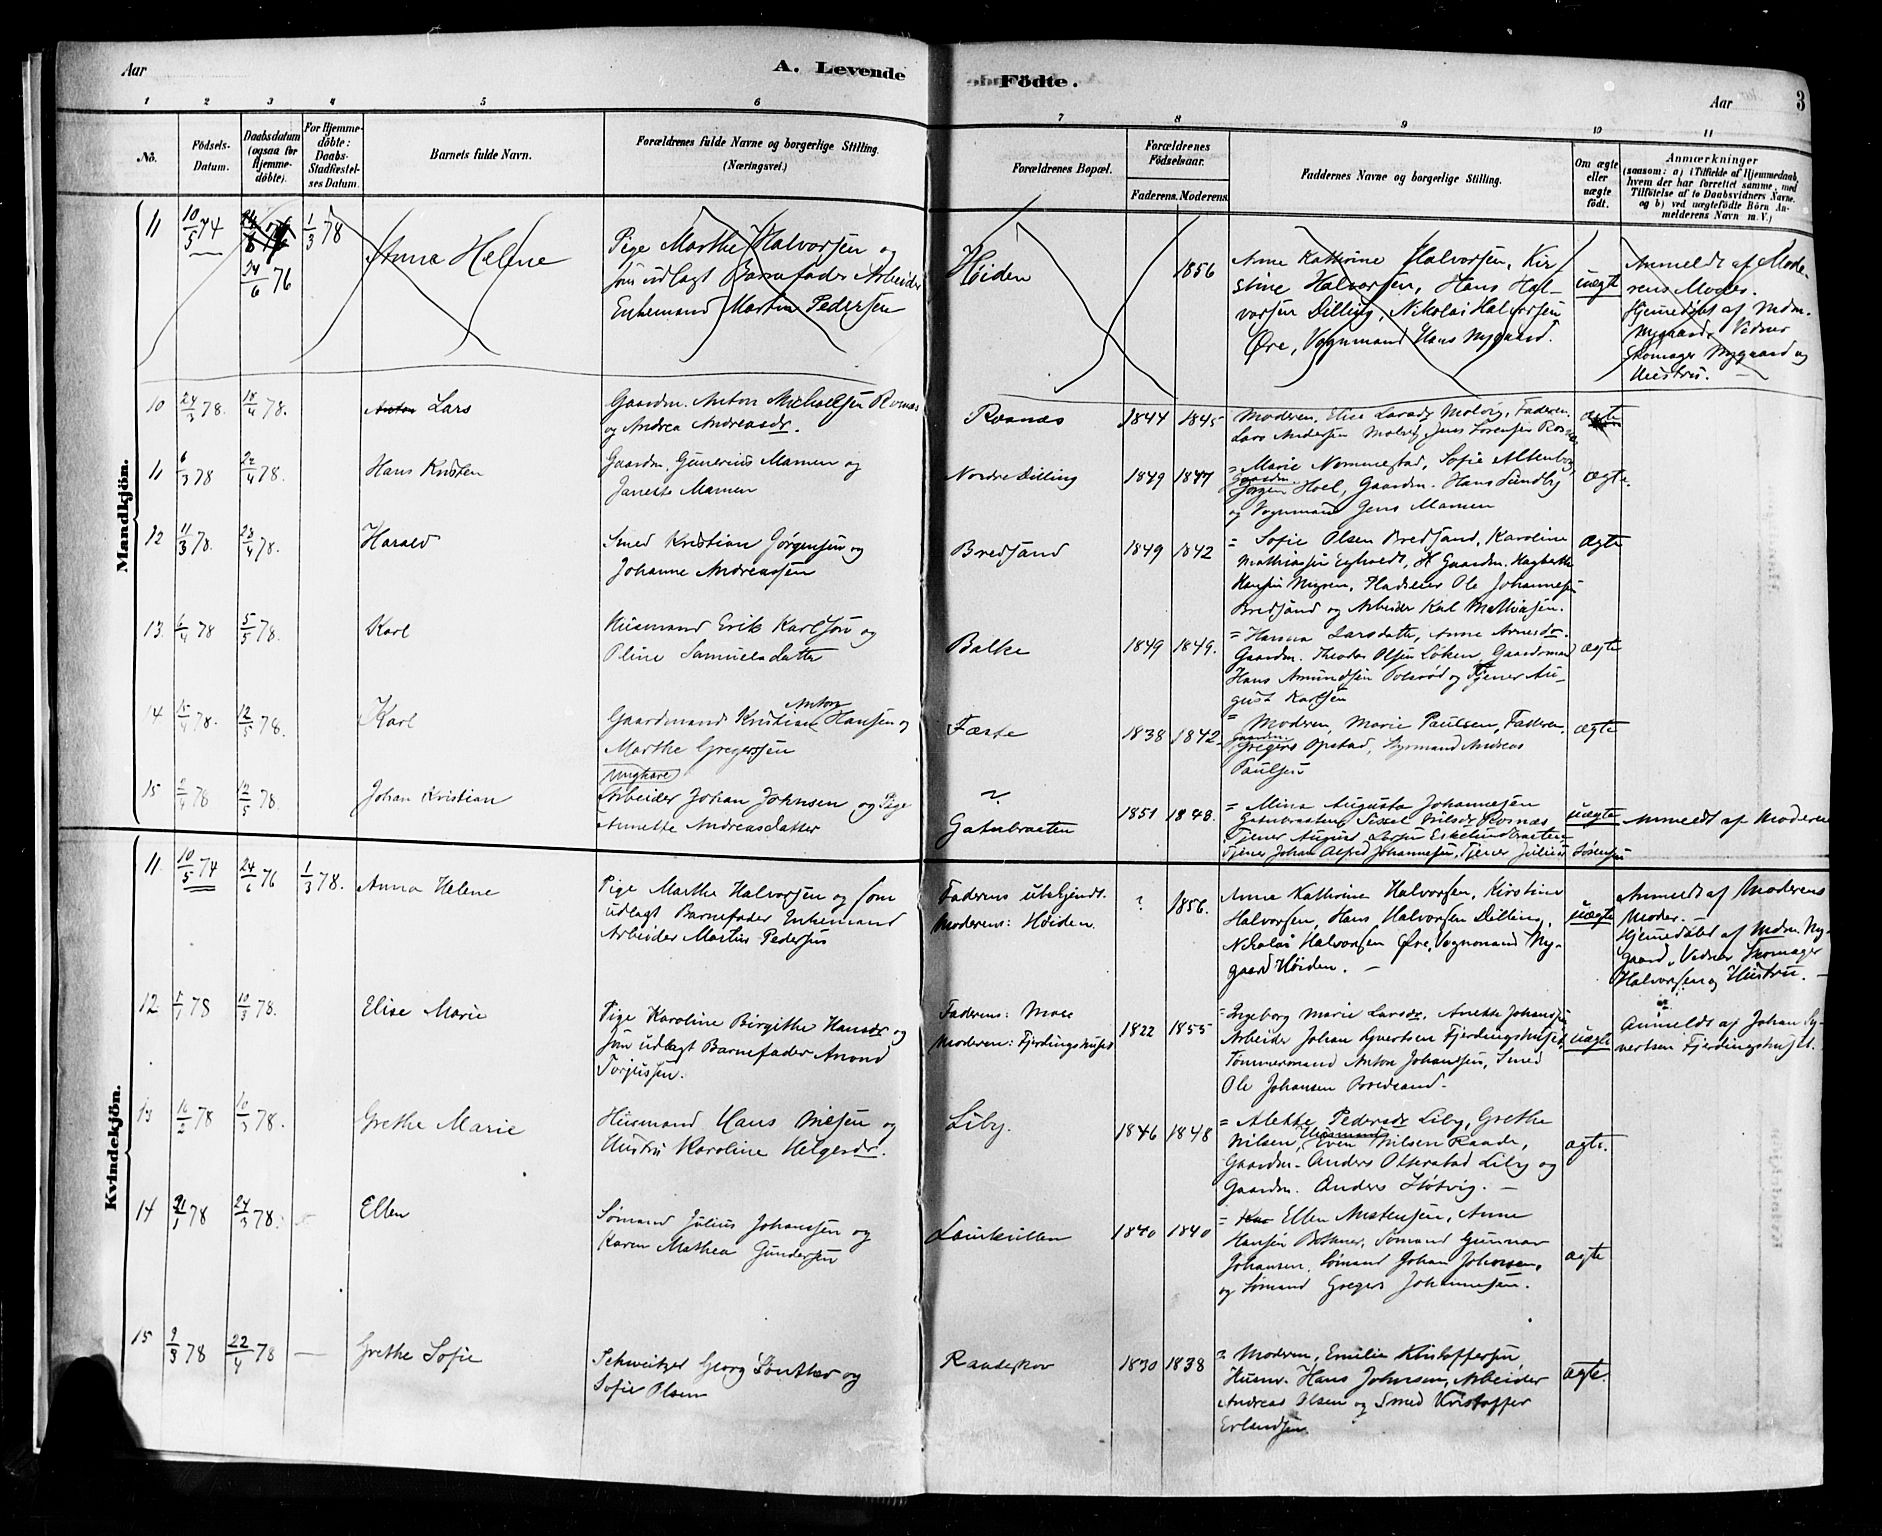 Aar
A. Levende
Födte.
Aar
3
1 2 3 4 5 6 7 8 9 10 11
No.
Födsels-Datum.
Daabsdatum (ogsaa for Hjemme-döbte).
For Hjemme-döbte: Daabs-Stadfæstel-ses Datum.
Barnets fulde Navn.
Forældrenes fulde Navne og borgerlige Stilling. (Næringsvei.)
Forældrenes Bopæl.
Forældrenes Födselsaar.
Faderens. Moderens.
Faddernes Navne og borgerlige Stilling.
Om ægte eller uægte födt.
Anmærkninger
(saasom: a) i Tilfælde af Hjemmedaab,
hvem der har forrettet samme, med
Tilföielse af to Daabsvidners Navne.
og b) ved uægtefödte Börn An-
melderens Navn m. V.)
Mandkjön.
11 10/5 74 24/6 76 1/3 78 Anna Helene
Pige Marthe Halvorsen og
som udlagt Barnefader Arbeider
Enkemand Martin Pedersen
Høiden 1856
Anne Kathrine Halvorsen, Kir-
stine Halvorsen, Hans Hal-
vorsen Dilling, Nikolai Halvorsen
Øre, Vognmand Hans Nygaard.
uægte
Anmeldt af Mode-
rens Moder.
Hjemedøbt af Mdm.
Nygaard, Vidner
Skomager Nygaard og
Hustru.
10 24/2 78. 18/4 78. Anton Lars
Gaardm. Anton Michaelsen Rosnæs
og Andrea Andreasdr.
Rosnæs 1844 1845
Moderen, Elise Larsdr Molvig, Faderen,
Lars Andersen Molvig, Jens Sørensen Rosnæs
ægte
11 6/3 78 22/4 78. Hans Kristen
Gaardm. Gunerius Mamen og
Janette Mamen
Nordre Dilling 1849 1847
= Marie Nommestad, Sofie Altenborg,
Gaardm.
Jørgen Hoel, Gaardm. Hans Sundby
og Vognmand Jens Mamen
ægte.
12 11/3 78. 22/4 78. Harald
Smed Kristian Jørgensen og
Johanne Andreassen
Bredsand 1849 1842
= Sofie Olsen Bredsand, Karoline
Mathiasen, Gaardm.
Hansen Mygren, Pladseier Ole Johannesen
Bredsand og Arbeider Karl Mathiasen.
ægte
13. 78 5/5 78. Karl
Husmand Erik Karlsen og
Oline Samuelsdatter
Balke 1849 1849.
= Hanna Larsdatter, Anne Arnesdr.
Gaardm. Theodor Olsen Løken, Gaardsmand
Hans Amundsen og Tjener Au-
gust Karlsen
ægte
14 78. 12/5 78. Karl
Anton
Gaardmand Kristian Hansen og
Marthe Gregersen
Færte 1838 1842.
= Moderen, Marie Paulsen, Faderen,
Gaardm.
Gregers Opstad, Styrmand Andreas
Paulsen
ægte
15 78 12/5 78. Johan Kristian
Ungkarl
Arbeider Johan Johnsen og Pige
Annette Andreasdatter
?
Gatubraaten 1851 1848.
= Mina Augusta Johannesen
Gatubraaten, Sissel Nilsdr Rosnæs
Tjener August Larsen Eskelundbraaten
Tjener Johan Alfred Johannesen, Tjener Julius Sørensen
uægte
Anmeldt af Moderen
Kvindekjön.
11. 10/5 74 24/6 76 1/3 78. Anna Helene
Pige Marthe Halvorsen og som
udlagt Barnefader Enkemand
Arbeider Martin Pedersen
Faderens ubekjendt.
Moderens: Høiden.
? 1856.
Anna Kathrine Halvorsen, Kirstine
Halvorsen, Hans Halvorsen Dilling,
Nikolai Halvorsen Øre, Vognmand Ny-
gaard Høiden. —
uægte
Anmeldt af Moderens
Moder.
Hjemedøbt af Mdm. Ny-
gaard, Vidner Skomager
Halvorsen og Hustru. —
12. 5/1 78 10/3 78. Elise Marie
Pige Karoline Birgithe Hansdr og
som udlagt Barnefader Anond
Torjussen.
Faderens: Moss
Moderen: Fjerdingshuset
1822 1855
= Ingeborg Marie Larsdr, Anette Johansen,
Arbeider Johan Syvertsen Fjerdingshuset,
Tømmermand Anton Johansen, Smed
Ole Johansen Bredsand.
uægte
Anmeldt af Johan Sy-
vertsen Fjerdingshuset.
13 16/2 78 10/3 78. Grethe Marie
Husmand Hans Nilsen og
Hustru Karoline Helgesdr.
Liby. 1846 1848
= Alette Pedersdr Liby, Grethe
Husmand
Nilsen, Even Nilsen Raade,
Gaardm. Anders Liby og
Gaardm. Anders Høtvig. —
ægte.
14 21/1 78 24/3 78. Ellen
Sømand Julius Johansen og
Karen Mathea Gundersen
1840 1840
= Kar Ellen Mortensen, Anne
Hansen, Sømand Gunnar
Johansen, Sømand Johan Johnsen,
og Sømand Gregers Johannesen.
ægte
15 9/3 78 22/4 78 — Grethe Sofie
Schweitzer Georg Günther og
Sofie Olsen
Raadeskov 1830 1838
= Moderen, Emilie Kristoffersen,
Husm. Hans Johnsen, Arbeider
Andreas Olsen og Smed Kristoffer
Erlandsen
ægte.